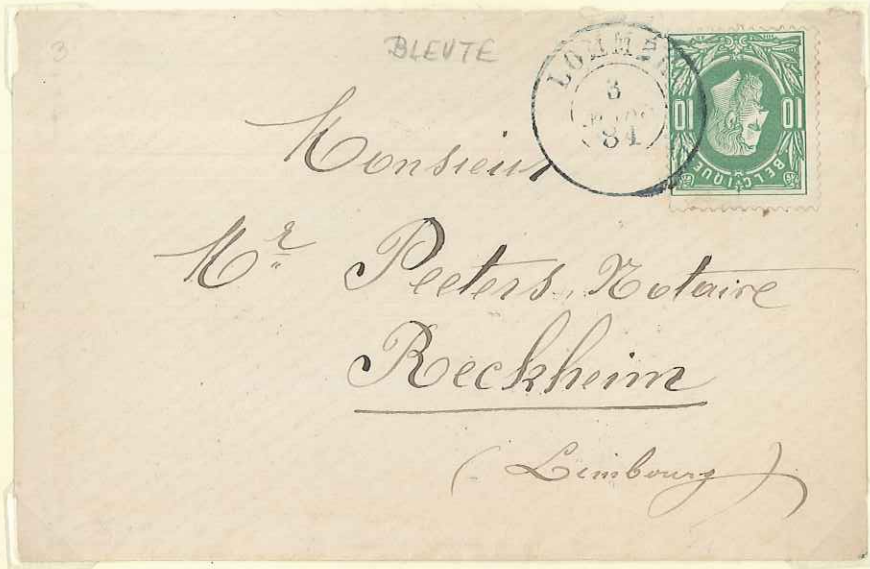 3
BLEUTE
LOMMEL
3
84
10 10
BELGIQUE
Monsieur
Mr Peeters, Notaire
Reckheim
(Limbourg)